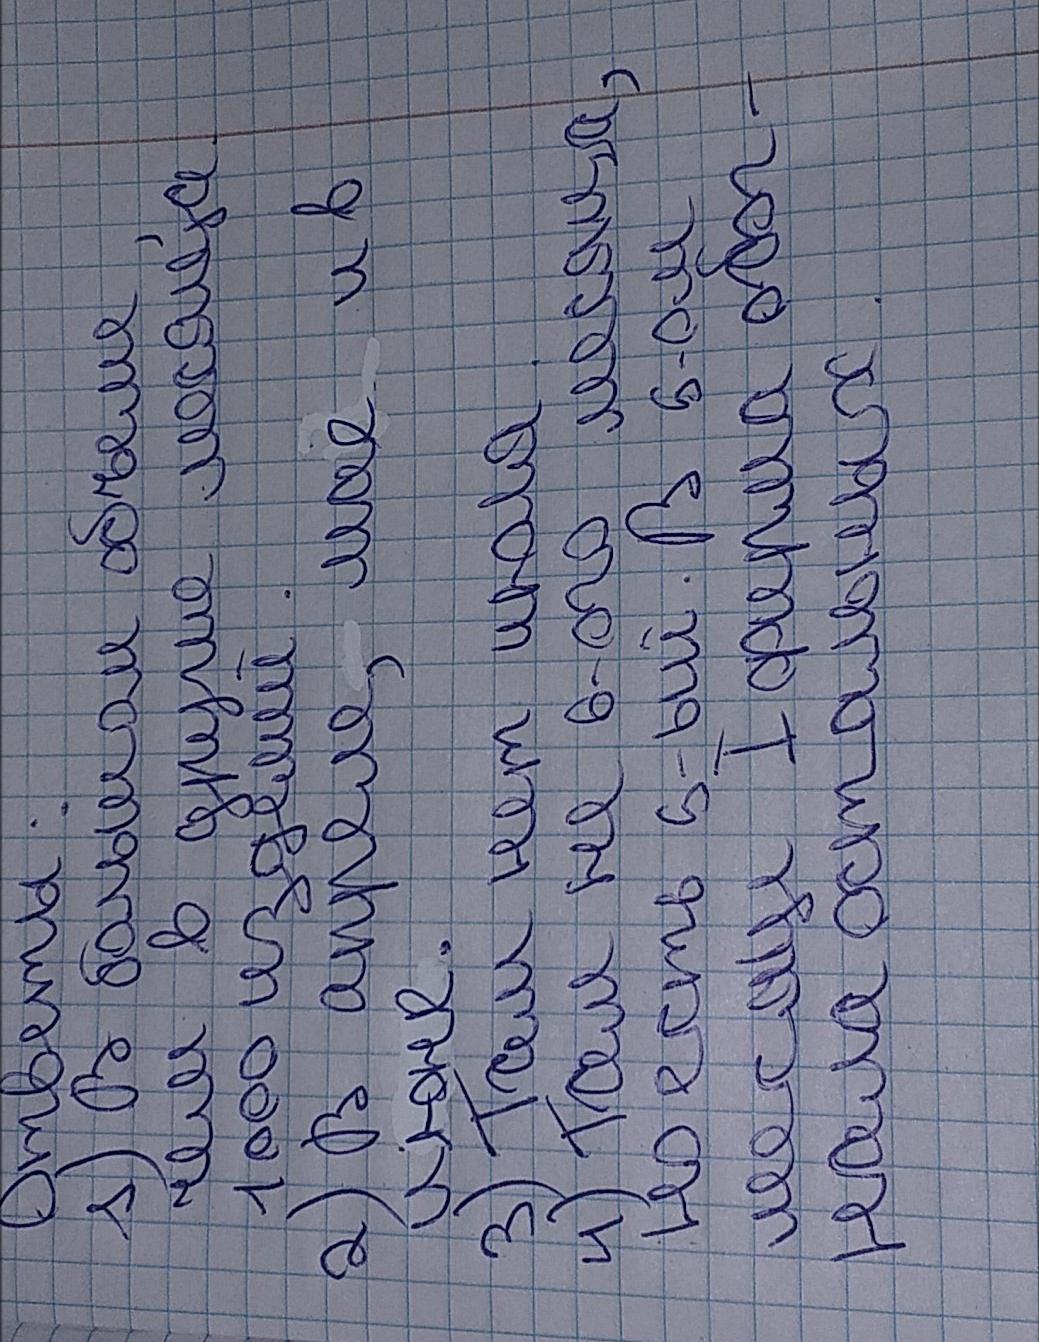 Ответы:
1) В большем объёме,
чем в другие месяца.
1000 изделий.
2) В апреле, мае и в
июне.
3) Там нет июля.
4) Там не 6-ого месяца,
но есть 5-ый. В 5-ом
месяце I фирма обог-
нала остальных.